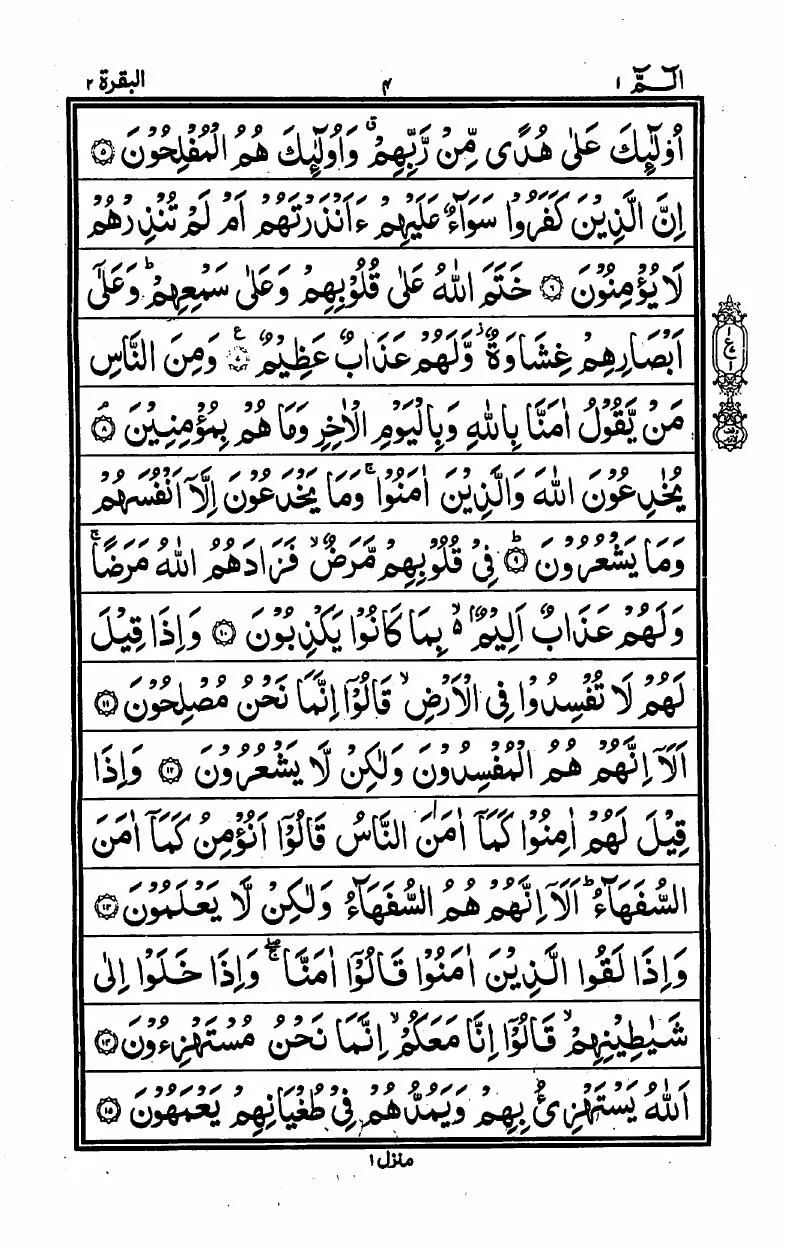 الٓـمّٓ ١
٤
البقرة ٢
اُولٰٓئِكَ عَلٰى هُدًى مِّنْ رَّبِّهِمْ ۗ وَاُولٰٓئِكَ هُمُ الْمُفْلِحُوْنَ ﴿٥﴾
اِنَّ الَّذِيْنَ كَفَرُوْا سَوَآءٌ عَلَيْهِمْ ءَاَنْذَرْتَهُمْ اَمْ لَمْ تُنْذِرْهُمْ
لَا يُؤْمِنُوْنَ ﴿٦﴾ خَتَمَ اللّٰهُ عَلٰى قُلُوْبِهِمْ وَعَلٰى سَمْعِهِمْ ؕ وَعَلٰٓى
اَبْصَارِهِمْ غِشَاوَةٌ ۡ وَّلَهُمْ عَذَابٌ عَظِيْمٌ ﴿٧﴾ ع وَمِنَ النَّاسِ
ع
مَنْ يَّقُوْلُ اٰمَنَّا بِاللّٰهِ وَبِالْيَوْمِ الْاٰخِرِ وَمَا هُمْ بِمُؤْمِنِيْنَ ۘ ﴿٨﴾
يُخٰدِعُوْنَ اللّٰهَ وَالَّذِيْنَ اٰمَنُوْا ۚ وَمَا يَخْدَعُوْنَ اِلَّآ اَنْفُسَهُمْ
وَمَا يَشْعُرُوْنَ ؕ ﴿٩﴾ فِيْ قُلُوْبِهِمْ مَّرَضٌ ۙ فَزَادَهُمُ اللّٰهُ مَرَضًا ۚ
وَلَهُمْ عَذَابٌ اَلِيْمٌۢ ۙ۬ بِمَا كَانُوْا يَكْذِبُوْنَ ﴿١٠﴾ وَاِذَا قِيْلَ
لَهُمْ لَا تُفْسِدُوْا فِى الْاَرْضِ ۙ قَالُوْٓا اِنَّمَا نَحْنُ مُصْلِحُوْنَ ﴿١١﴾
اَلَآ اِنَّهُمْ هُمُ الْمُفْسِدُوْنَ وَلٰكِنْ لَّا يَشْعُرُوْنَ ﴿١٢﴾ وَاِذَا
قِيْلَ لَهُمْ اٰمِنُوْا كَمَآ اٰمَنَ النَّاسُ قَالُوْٓا اَنُؤْمِنُ كَمَآ اٰمَنَ
السُّفَهَآءُ ؕ اَلَآ اِنَّهُمْ هُمُ السُّفَهَآءُ وَلٰكِنْ لَّا يَعْلَمُوْنَ ﴿١٣﴾
وَاِذَا لَقُوا الَّذِيْنَ اٰمَنُوْا قَالُوْٓا اٰمَنَّا ۖۚ وَاِذَا خَلَوْا اِلٰى
شَيٰطِيْنِهِمْ ۙ قَالُوْٓا اِنَّا مَعَكُمْ ۙ اِنَّمَا نَحْنُ مُسْتَهْزِءُوْنَ ﴿١٤﴾
اَللّٰهُ يَسْتَهْزِئُ بِهِمْ وَيَمُدُّهُمْ فِيْ طُغْيَانِهِمْ يَعْمَهُوْنَ ﴿١٥﴾
منزل ١